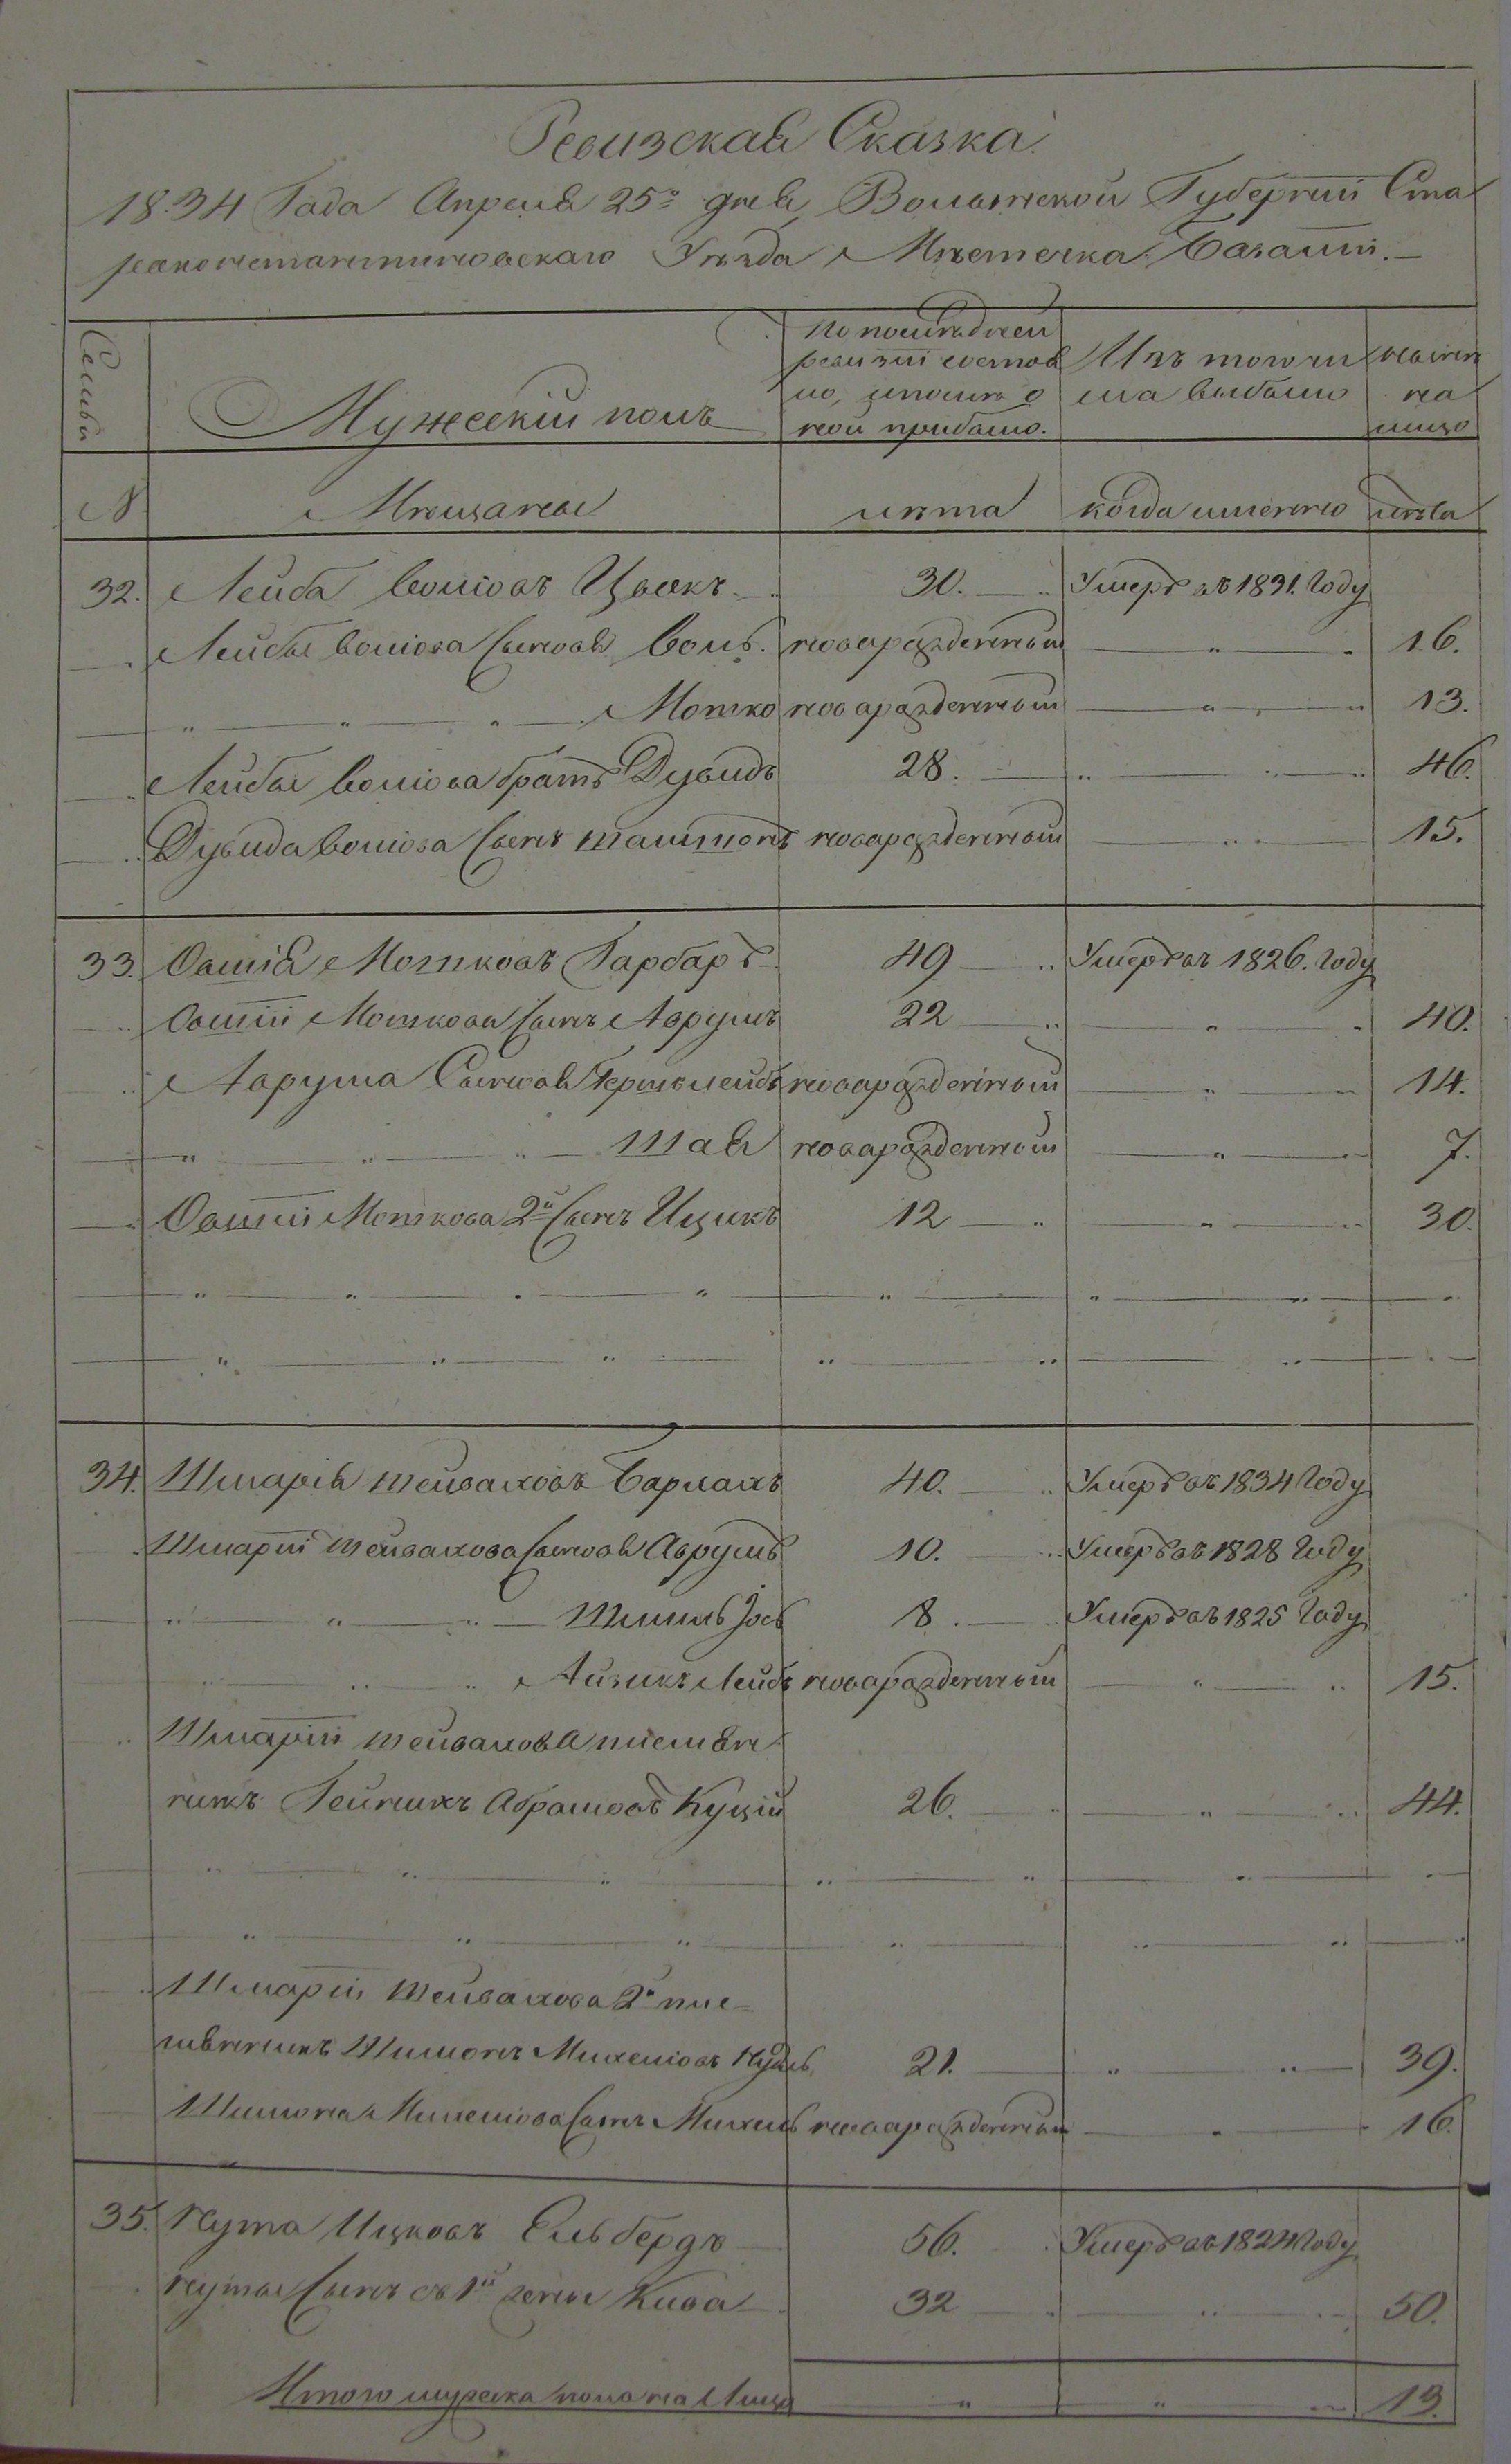 Ревизская Сказка
1834 Года Апреля 25го дня Волынской Губернии Ста
роконстантиновскаго Уезда Мѣстечка Базалии.
Семьи
Мужескій полъ
По последней
ревизіи состоя
ло, и после о
ной прибыло.
Изъ того чи
сла выбыло
ныне
на
лицо
№ Мѣщане лѣта когда именно лѣта
32. Лейба Волiовъ Цвекъ 30. Умеръ въ 1831. Году
Лейбы Волiова Сыновья Воль. новорожденный 16.
" " " Мотко новорожденный 13.
Лейбы Волiова братъ Дувидъ 28. 46.
Дувида Волiова Сынъ новорожденный 15.
33. Овшія Мотковъ Гарбаръ 49 Умеръ въ 1826. Году
Овшіи Моткова Сынъ Аврумъ 22 40.
Аврума Сыновья Гершълейбъ новорожденный 14.
" " " Шая новорожденный 7.
Овшіи Моткова 2й Сынъ Ицикъ 12 30.
34. Шмарія Шейваховъ Бармакъ 40. Умеръ въ 1834 Году
Шмаріи Шейвахова Сыновья Аврумъ 10. Умеръ въ 1828 Году
" " " Шмиль Іось 8. Умеръ въ 1825 Году
" " " Айзикъ Лейбъ новорожденный 15.
Шмаріи Шейвахова племян
никъ Гейнихъ Абрамовъ Куцій 26. 44.
Шмаріи Шейвахова 2й пле=
мянникъ Шимонъ Михелiовъ 21. 39.
Шимона Михелiова Сынъ Михель новорожденный 16.
35. Нута Ицковъ Ельбердъ 56. Умеръ въ 1824 Году
Нуты Сынъ съ 1й жены Кива 32 50.
Итого мужеска пола на Лицо 13.